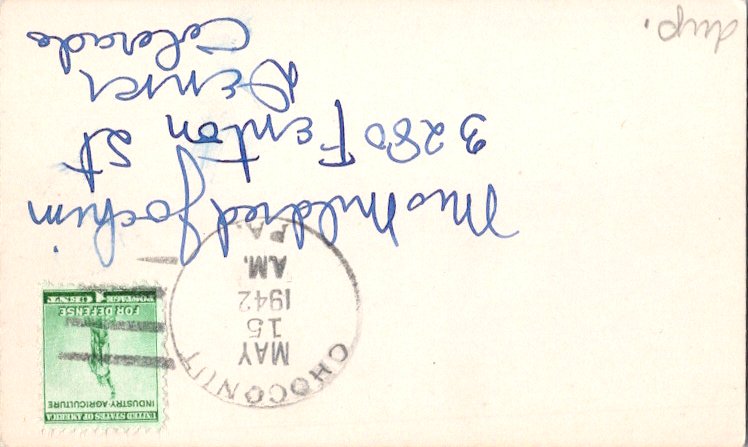 CHOCONUT
MAY
15
A.M.
1942
PA.
UNITED STATES OF AMERICA
INDUSTRY-AGRICULTURE
FOR DEFENSE
POSTAGE 1 CENT
Miss Mildred Jochim
3280 Fenton St
Denver
Colorado
dup.